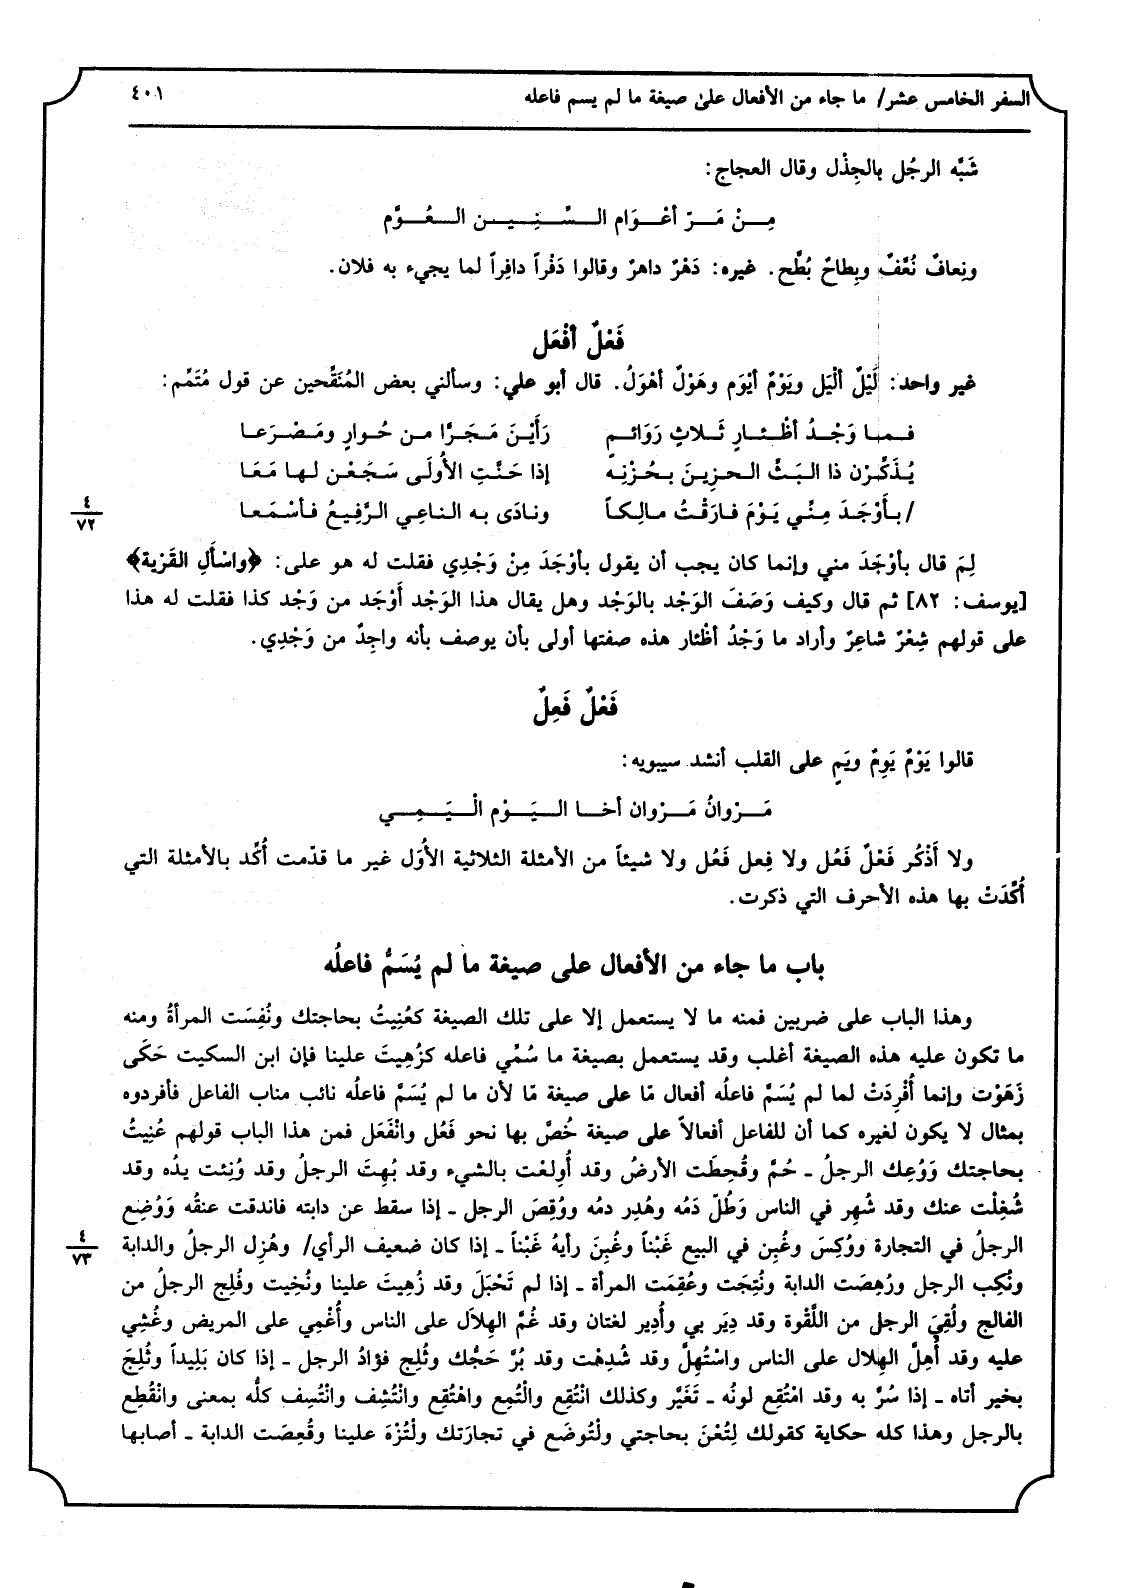 السفر الخامس عشر/ ما جاء من الأفعال علىٰ صيغة ما لم يسم فاعله
٤٠١
شَبَّه الرجُل بالجِذْل وقال العجاج:
مِـــنْ مَـــرّ أعْـــوَام الـــسِّـنِـيـــن الـــعُـــوَّم
ونِعافٌ نُعَّفٌ وبِطاحٌ بُطَّح. غيره: دَهْرٌ داهرٌ وقالوا دَفْراً دافِراً لما يجيء به فلان.
فَعْلٌ أفْعَل
غير واحد: لَيْلٌ ألْيَل ويَوْمٌ أيْوَم وهَوْلٌ أهْوَلُ. قال أبو علي: وسألني بعض المُنَقِّحين عن قول مُتَمِّم:
فـمـا وَجْـدُ أظْـئـارٍ ثَـلاثٍ رَوَائـمٍ رَأَيْـنَ مَـجَـرًّا مـن حُـوارٍ ومَـصْـرَعـا
يُـذَكِّـرْن ذا الـبَـثِّ الـحزِيـنَ بـحُـزْنِـه إذا حَـنَّـتِ الأُولَـى سَـجَـعْـن لـهـا مَـعَـا
/بـأَوْجَـدَ مِـنِّـي يَـوْمَ فـارَقْـتُ مـالِـكـاً ونـادَى بـه الـناعِـي الـرَّفِـيـعُ فـأسْـمَـعـا
٤
٧٢
لِمَ قال بأوْجَدَ مني وإنما كان يجب أن يقول بأوْجَدَ مِنْ وَجْدِي فقلت له هو على: ﴿واسْأَلِ القَرْية﴾
[يوسف: ٨٢] ثم قال وكيف وَصَفَ الوَجْد بالوَجْد وهل يقال هذا الوَجْد أَوْجَد من وَجْد كذا فقلت له هذا
على قولهم شِعْرٌ شاعِرٌ وأراد ما وَجْدُ أظْئار هذه صفتها أولى بأن يوصف بأنه واجِدٌ من وَجْدِي.
فَعْلٌ فَعِلٌ
قالوا يَوْمٌ يَوِمٌ ويَمٍ على القلب أنشد سيبويه:
مَـــرْوانُ مَـــرْوان أخـــا الـــيَـــوْم الْـــيَـــمِـــي
ولا أَذْكُر فَعْلٌ فَعُل ولا فِعل فَعُل ولا شيئاً من الأمثلة الثلاثية الأُوَل غير ما قدّمت أُكِّد بالأمثلة التي
أُكِّدَتْ بها هذه الأحرف التي ذكرت.
باب ما جاء من الأفعال على صيغة ما لم يُسَمَّ فاعلُه
وهذا الباب على ضربين فمنه ما لا يستعمل إلا على تلك الصيغة كَعُنِيتُ بحاجتك ونُفِسَت المرأةُ ومنه
ما تكون عليه هذه الصيغة أغلب وقد يستعمل بصيغة ما سُمِّي فاعله كزُهِيتَ علينا فإن ابن السكيت حَكَى
زَهَوْت وإنما أُفْرِدَتْ لما لم يُسَمَّ فاعلُه أفعال مّا على صيغة مّا لأن ما لم يُسَمَّ فاعلُه نائب مناب الفاعل فأفردوه
بمثال لا يكون لغيره كما أن للفاعل أفعالاً على صيغة خُصَّ بها نحو فَعُل وانْفَعَل فمن هذا الباب قولهم عُنِيتُ
بحاجتك وَوُعِك الرجلُ ـ حُمَّ وقُحِطَت الأرضُ وقد أُولِعْت بالشيء وقد بُهِتَ الرجلُ وقد وُثِئت يدُه وقد
شُغِلْت عنك وقد شُهِر في الناس وَطُلّ دَمُه وهُدِر دمُه ووُقِصَ الرجل ـ إذا سقط عن دابته فاندقت عنقُه وَوُضِع
الرجلُ في التجارة ووُكِسَ وغُبِن في البيع غَبْناً وغُبِنَ رأيهُ غَبْناً ـ إذا كان ضعيف الرأي/ وهُزِل الرجلُ والدابة
٤
٧٣
ونُكِب الرجل ورُهِصَت الدابة ونُتِجَت وعُقِمَت المرأة ـ إذا لم تَحْبَلَ وقد زُهِيتَ علينا ونُخِيت وفُلِج الرجلُ من
الفالج ولُقِيَ الرجل من اللَّقْوة وقد دِيَر بي وأُدِير لغتان وقد غُمَّ الهِلاَل على الناس وأُغْمِي على المريض وغُشِي
عليه وقد أُهِلَّ الهِلال على الناس واسْتُهِلَّ وقد شُدِهْت وقد بُرَّ حَجُّك وثُلِج فؤادُ الرجل ـ إذا كان بَلِيداً وثُلِجَ
بخير أتاه ـ إذا سُرَّ به وقد امْتُقِع لونُه ـ تَغَيَّر وكذلك انْتُقِع والْتُمِع واهْتُقِع وانْتُشِف وانْتُسِف كلُّه بمعنى وانْقُطِع
بالرجل وهذا كله حكاية كقولك لِتُعْنَ بحاجتي ولْتُوضَع في تجارَتك ولْتُزْهَ علينا وقُعِصَت الدابة ـ أصابها